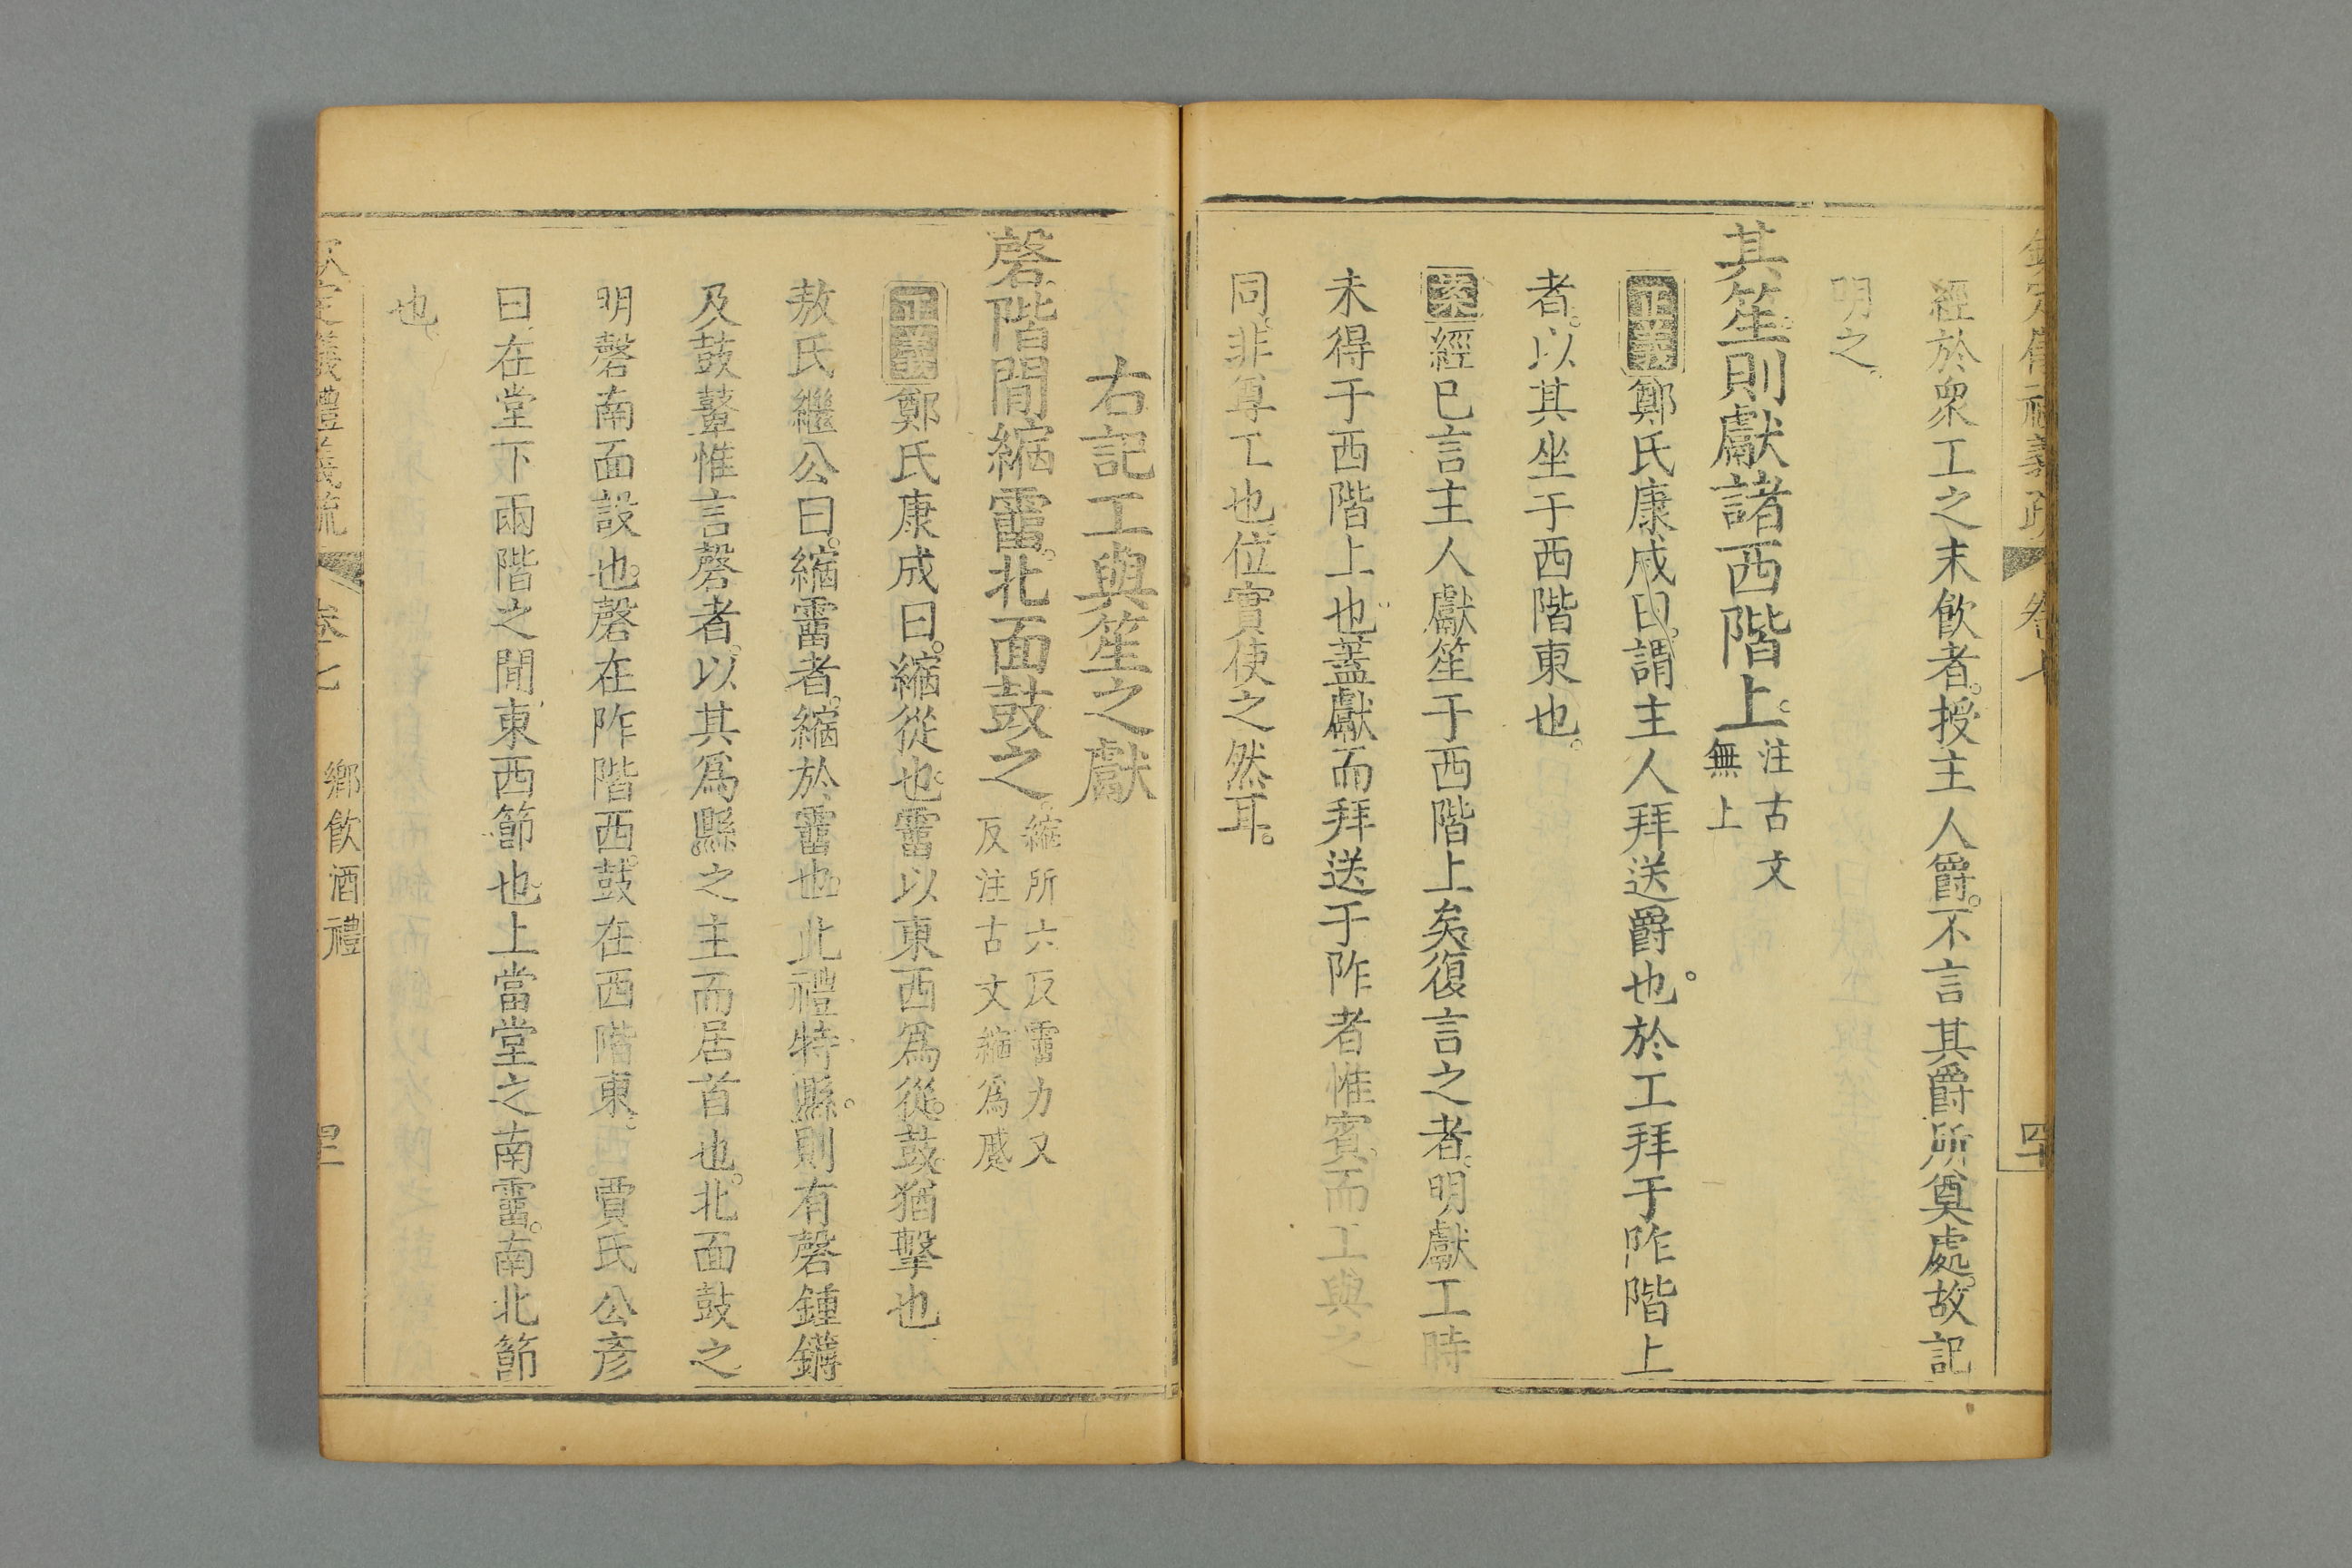 欽定儀禮義疏 卷七 四十
經於衆工之末飲者。授主人爵。不言其爵所奠處。故記
明之。
其笙。則獻諸西階上。注古文
無上
正義鄭氏康成曰。謂主人拜送爵也。於工拜于阼階上
者。以其坐于西階東也。
案經已言主人獻笙于西階上矣。復言之者。明獻工時
未得于西階上也。蓋獻而拜送于阼者惟賓。而工與之
同。非尊工也。位實使之然耳。
右記工與笙之獻
磬階間縮霤。北面鼓之。縮所六反霤力又
反注古文縮爲蹙
正義鄭氏康成曰。縮從也。霤以東西爲從。鼓猶擊也
敖氏繼公曰。縮霤者。縮於霤也。此禮特縣。則有磬鍾鑮
及鼓鼙。惟言磬者。以其爲縣之主而居首也。北面鼓之
明磬南面設也。磬在阼階西。鼓在西階東。 賈氏公彥
曰。在堂下兩階之間。東西節也。上當堂之南霤。南北節
也。
欽定儀禮義疏 卷七 鄉飲酒禮